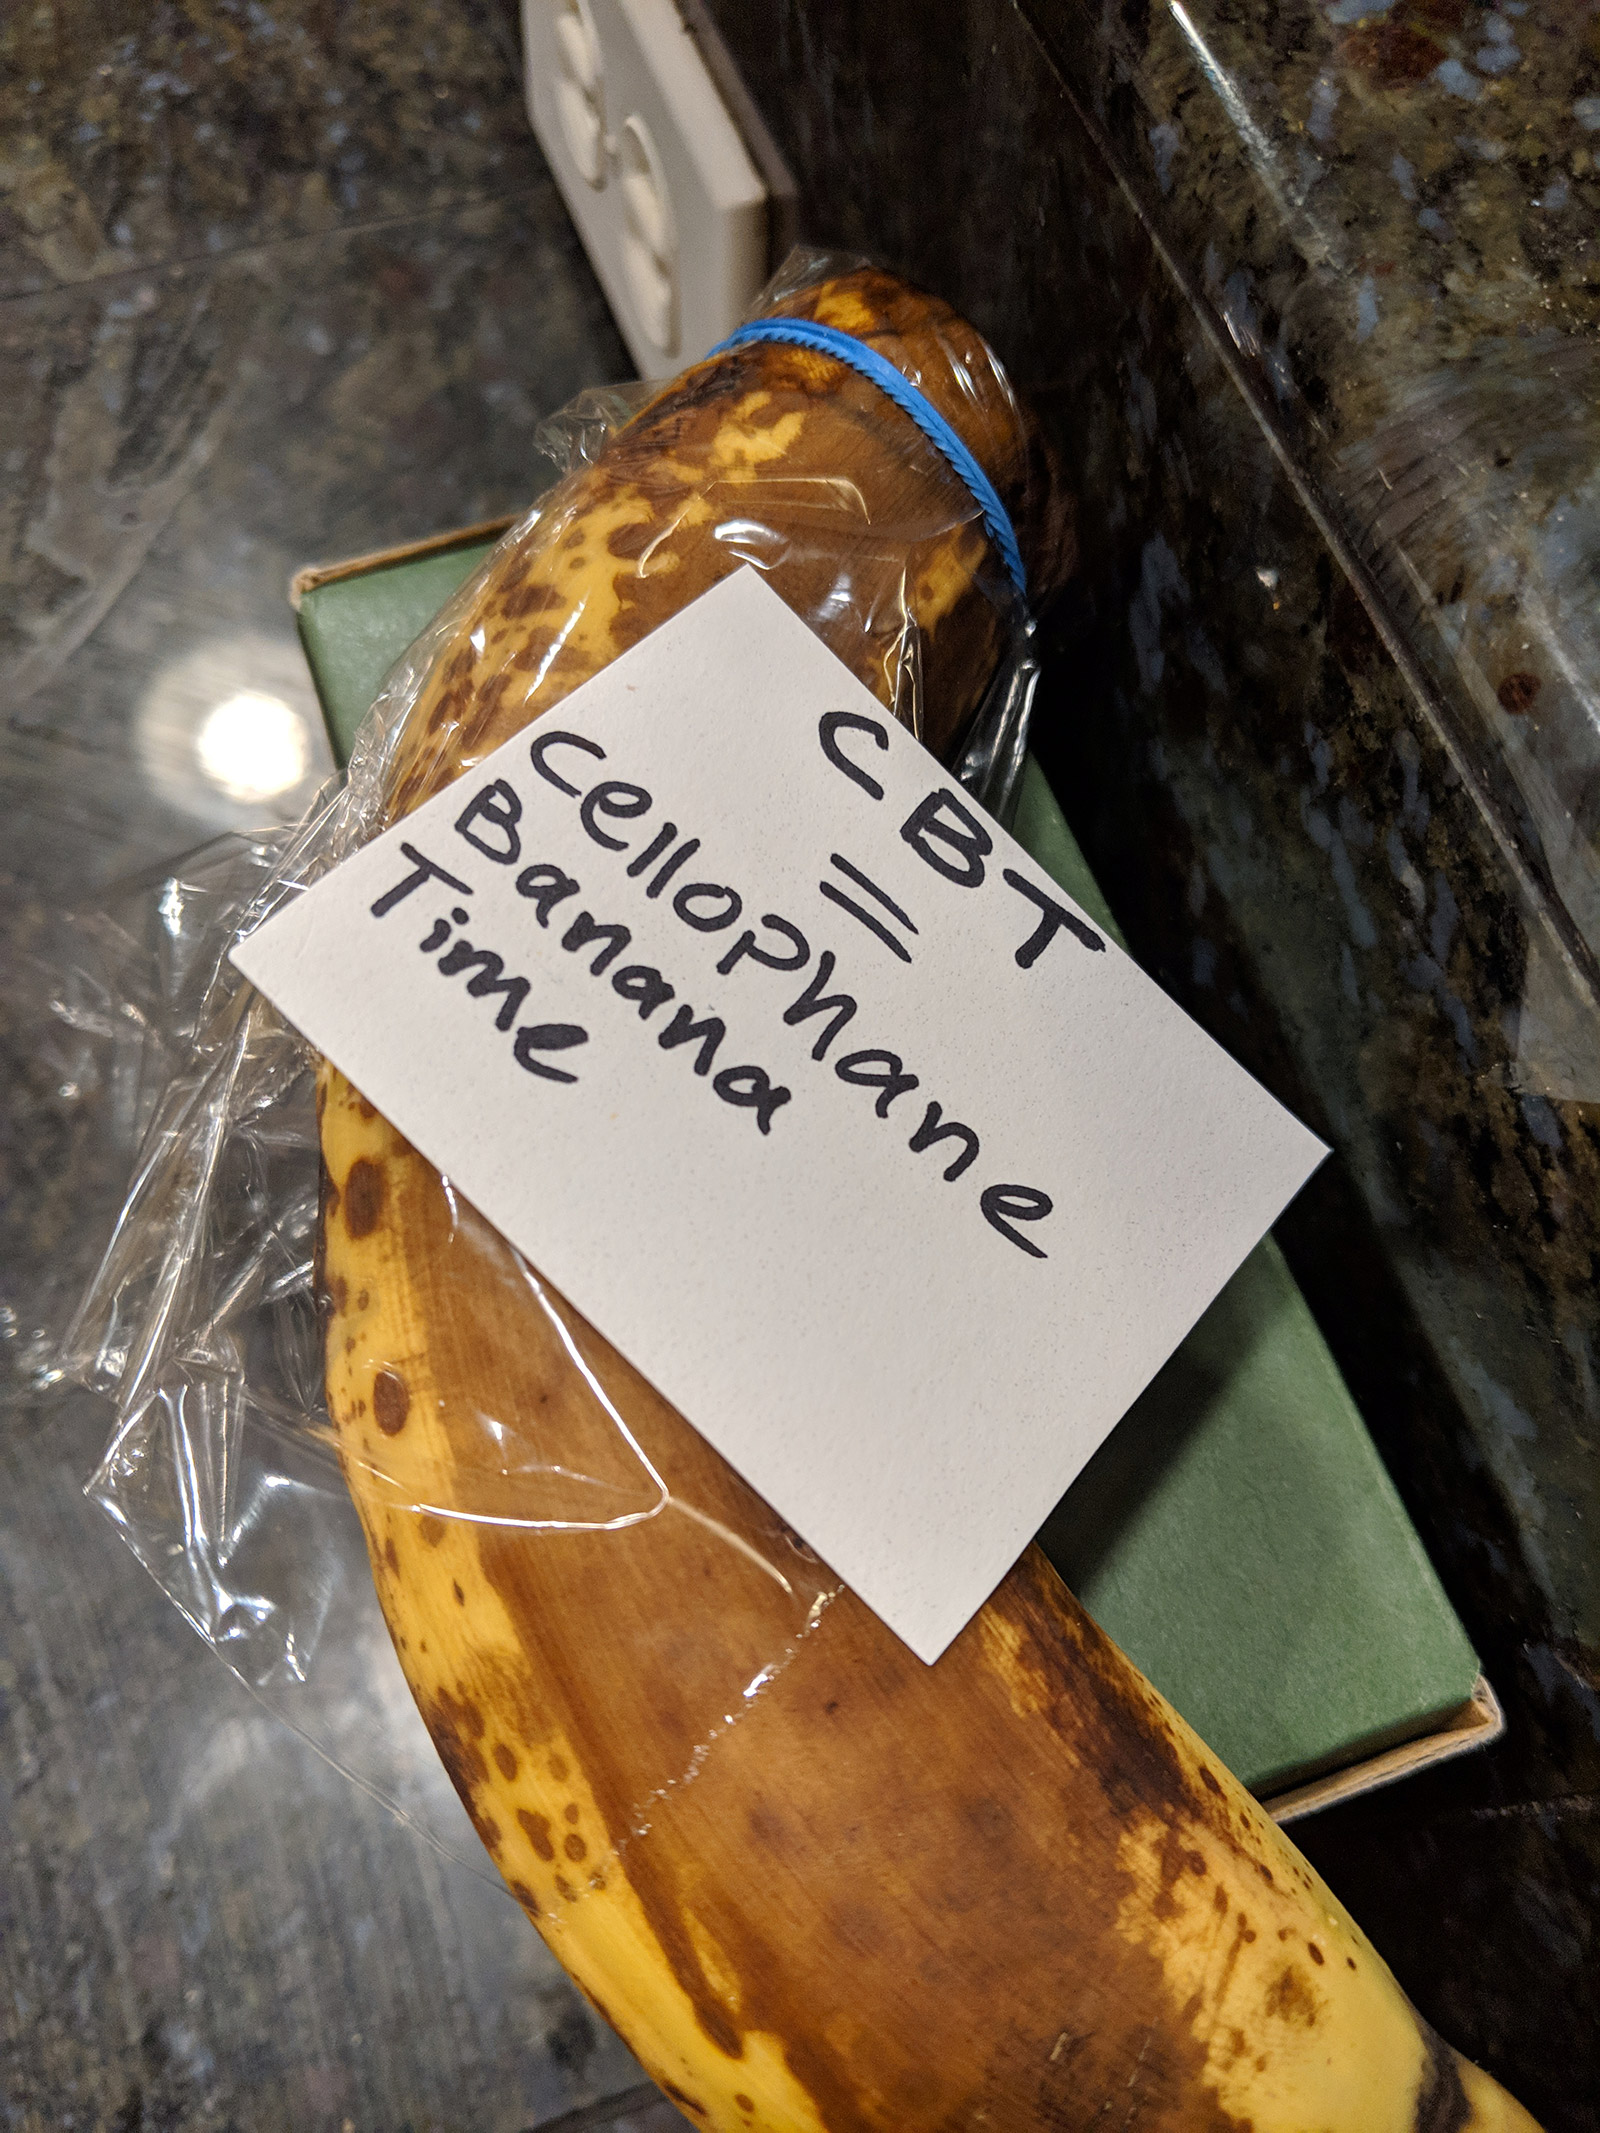 CBT
=
Cellophane
Banana
Time